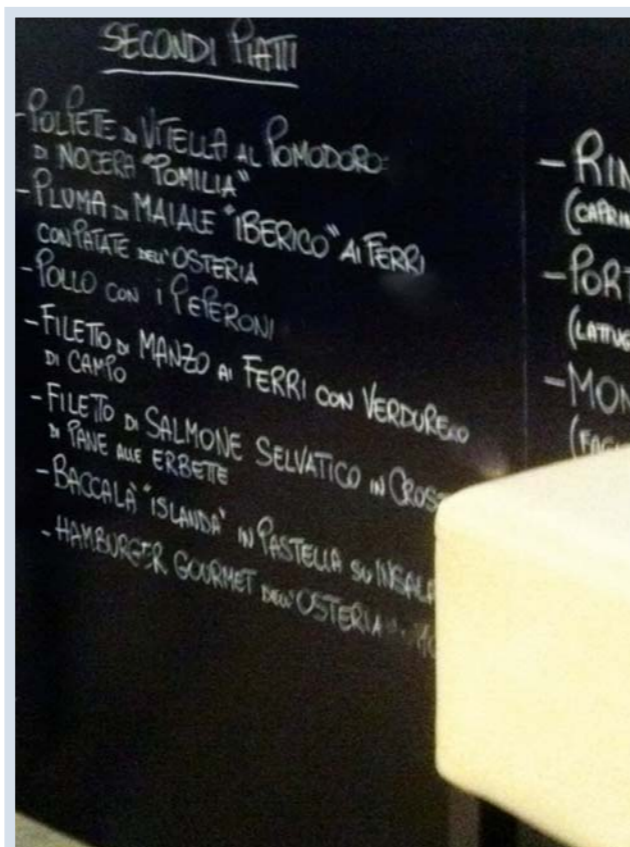 SECONDI PIATTI
- POLPETE DI VITELLA AL POMODORO
DI NOCERA "POMILIA"
- PLUMA DI MAIALE "IBERICO" AI FERRI
CON PATATE DELL'OSTERIA
- POLLO CON I PEPERONI
- FILETTO DI MANZO AI FERRI CON VERDURE
DI CAMPO
- FILETTO DI SALMONE SELVATICO IN CROS
DI PANE ALLE ERBETTE
- BACCALÀ "ISLANDA" IN PASTELLA SU INSALA
- HAMBURGER GOURMET DELL'OSTERIA
- RIN
(CAPRIN
- PORT
(LATTUG
- MON